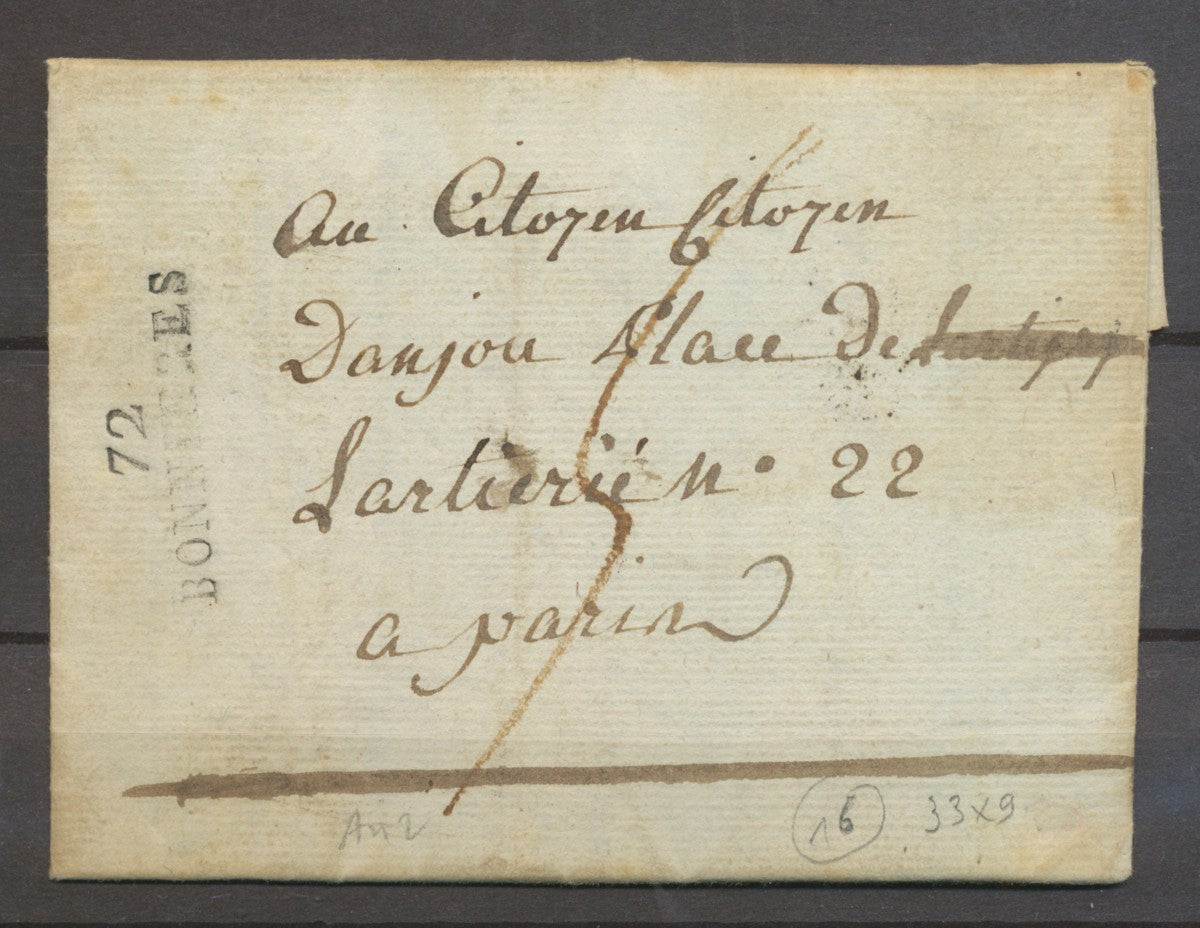 72
BONNIERES
Au Citoyen Citoyen
Danjou Place De
Lartierié N° 22
a paris
An 2
16 33x9